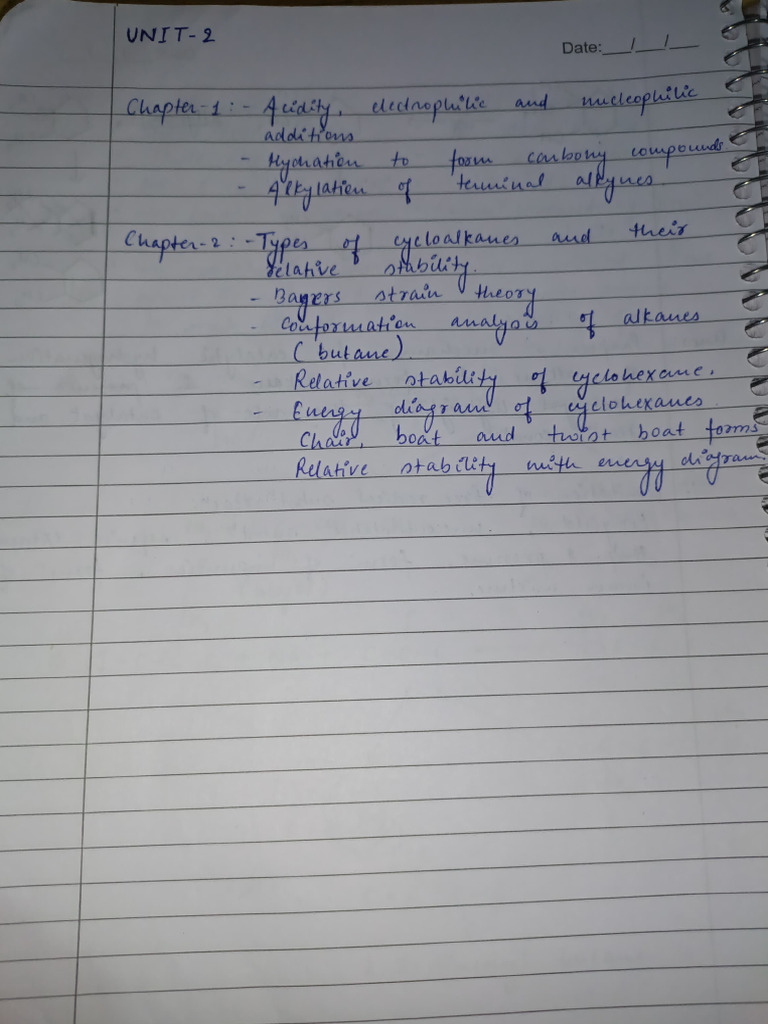 UNIT-2
Date:__/__/__
Chapter-1 :- Acidity, electrophilic and nucleophilic
additions
- Hydration to form carbony compounds
- Alkylation of terminal alkynes.
Chapter-2 :- Types of cycloalkanes and their
relative stability.
- Bayers strain theory
- Conformation analysis of alkanes
(butane).
- Relative stability of cyclohexane.
- Energy diagram of cyclohexanes
Chair, boat and twist boat forms
Relative stability with energy diagram.